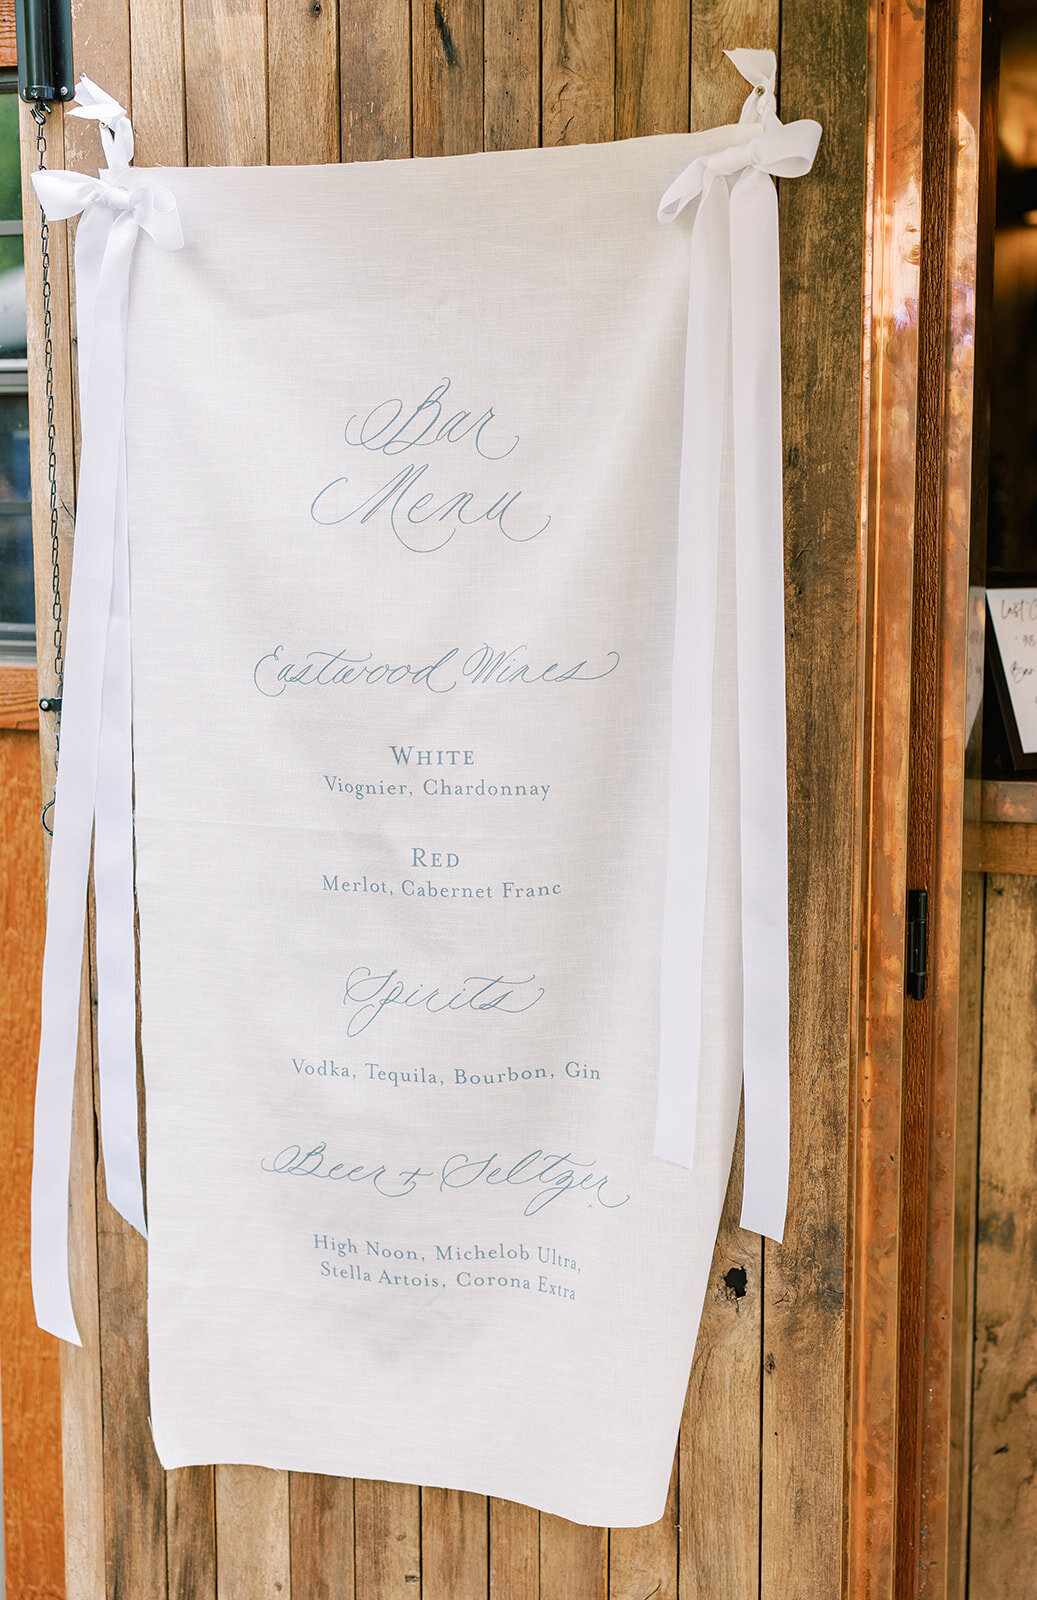 Bar
Menu
Eastwood Wines
WHITE
Viognier, Chardonnay
RED
Merlot, Cabernet Franc
Spirits
Vodka, Tequila, Bourbon, Gin
Beer + Seltzer
High Noon, Michelob Ultra,
Stella Artois, Corona Extra
Last
Bar